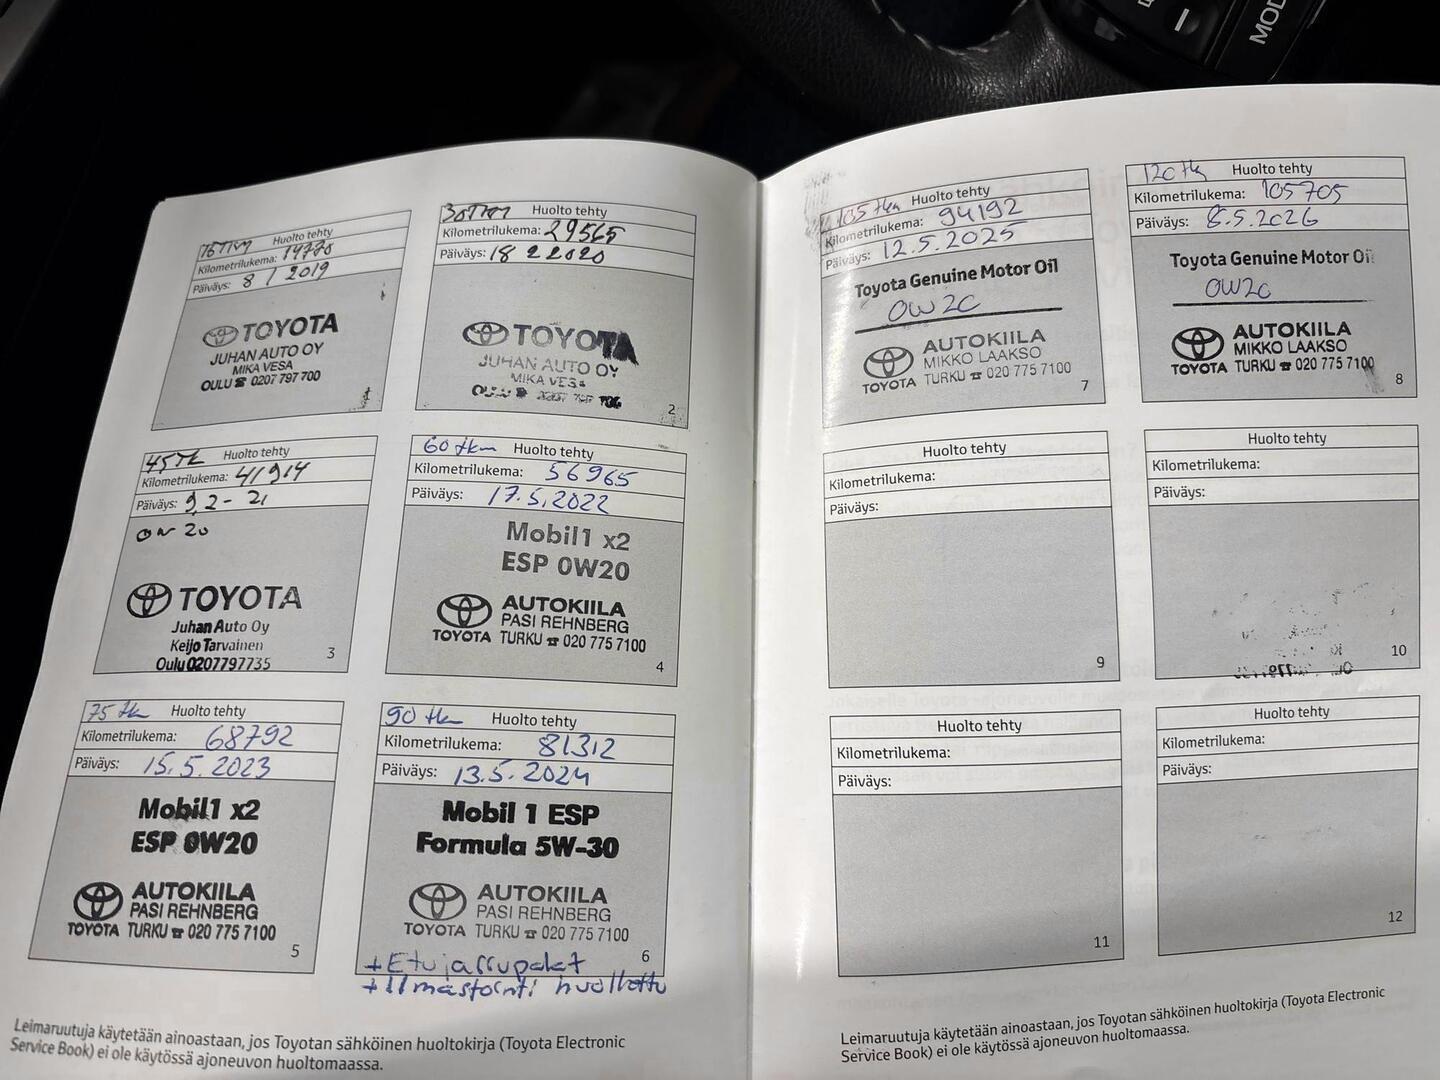 MOD
15TKM Huolto tehty
Kilometrilukema: 14770
Päiväys: 8 1 2019
TOYOTA
JUHAN AUTO OY
MIKA VESA
OULU ☎ 0207 797 700
1
30TKM Huolto tehty
Kilometrilukema: 29565
Päiväys: 18 2 2020
TOYOTA
JUHAN AUTO OY
MIKA VESA
OULU ☎
2
45TK Huolto tehty
Kilometrilukema: 41914
Päiväys: 9.2 - 21
0W20
TOYOTA
Juhan Auto Oy
Keijo Tarvainen
Oulu 0207797735
3
60 tkm Huolto tehty
Kilometrilukema: 56965
Päiväys: 17.5.2022
Mobil1 x2
ESP 0W20
AUTOKIILA
PASI REHNBERG
TOYOTA TURKU ☎ 020 775 7100
4
75 tk Huolto tehty
Kilometrilukema: 68792
Päiväys: 15.5.2023
Mobil1 x2
ESP 0W20
AUTOKIILA
PASI REHNBERG
TOYOTA TURKU ☎ 020 775 7100
5
90 tk Huolto tehty
Kilometrilukema: 81312
Päiväys: 13.5.2024
Mobil 1 ESP
Formula 5W-30
AUTOKIILA
PASI REHNBERG
TOYOTA TURKU ☎ 020 775 7100
6
+ Etujarrupalat
+ Ilmastointi huollettu
Leimaruutuja käytetään ainoastaan, jos Toyotan sähköinen huoltokirja (Toyota Electronic
Service Book) ei ole käytössä ajoneuvon huoltomaassa.
105 tkm Huolto tehty
Kilometrilukema: 94192
Päiväys: 12.5.2025
Toyota Genuine Motor Oil
0W20
AUTOKIILA
MIKKO LAAKSO
TOYOTA TURKU ☎ 020 775 7100
7
120 tk Huolto tehty
Kilometrilukema: 105705
Päiväys: 8.5.2026
Toyota Genuine Motor Oil
0W20
AUTOKIILA
MIKKO LAAKSO
TOYOTA TURKU ☎ 020 775 7100
8
Huolto tehty
Kilometrilukema:
Päiväys:
9
Huolto tehty
Kilometrilukema:
Päiväys:
10
Huolto tehty
Kilometrilukema:
Päiväys:
11
Huolto tehty
Kilometrilukema:
Päiväys:
12
Leimaruutuja käytetään ainoastaan, jos Toyotan sähköinen huoltokirja (Toyota Electronic
Service Book) ei ole käytössä ajoneuvon huoltomaassa.